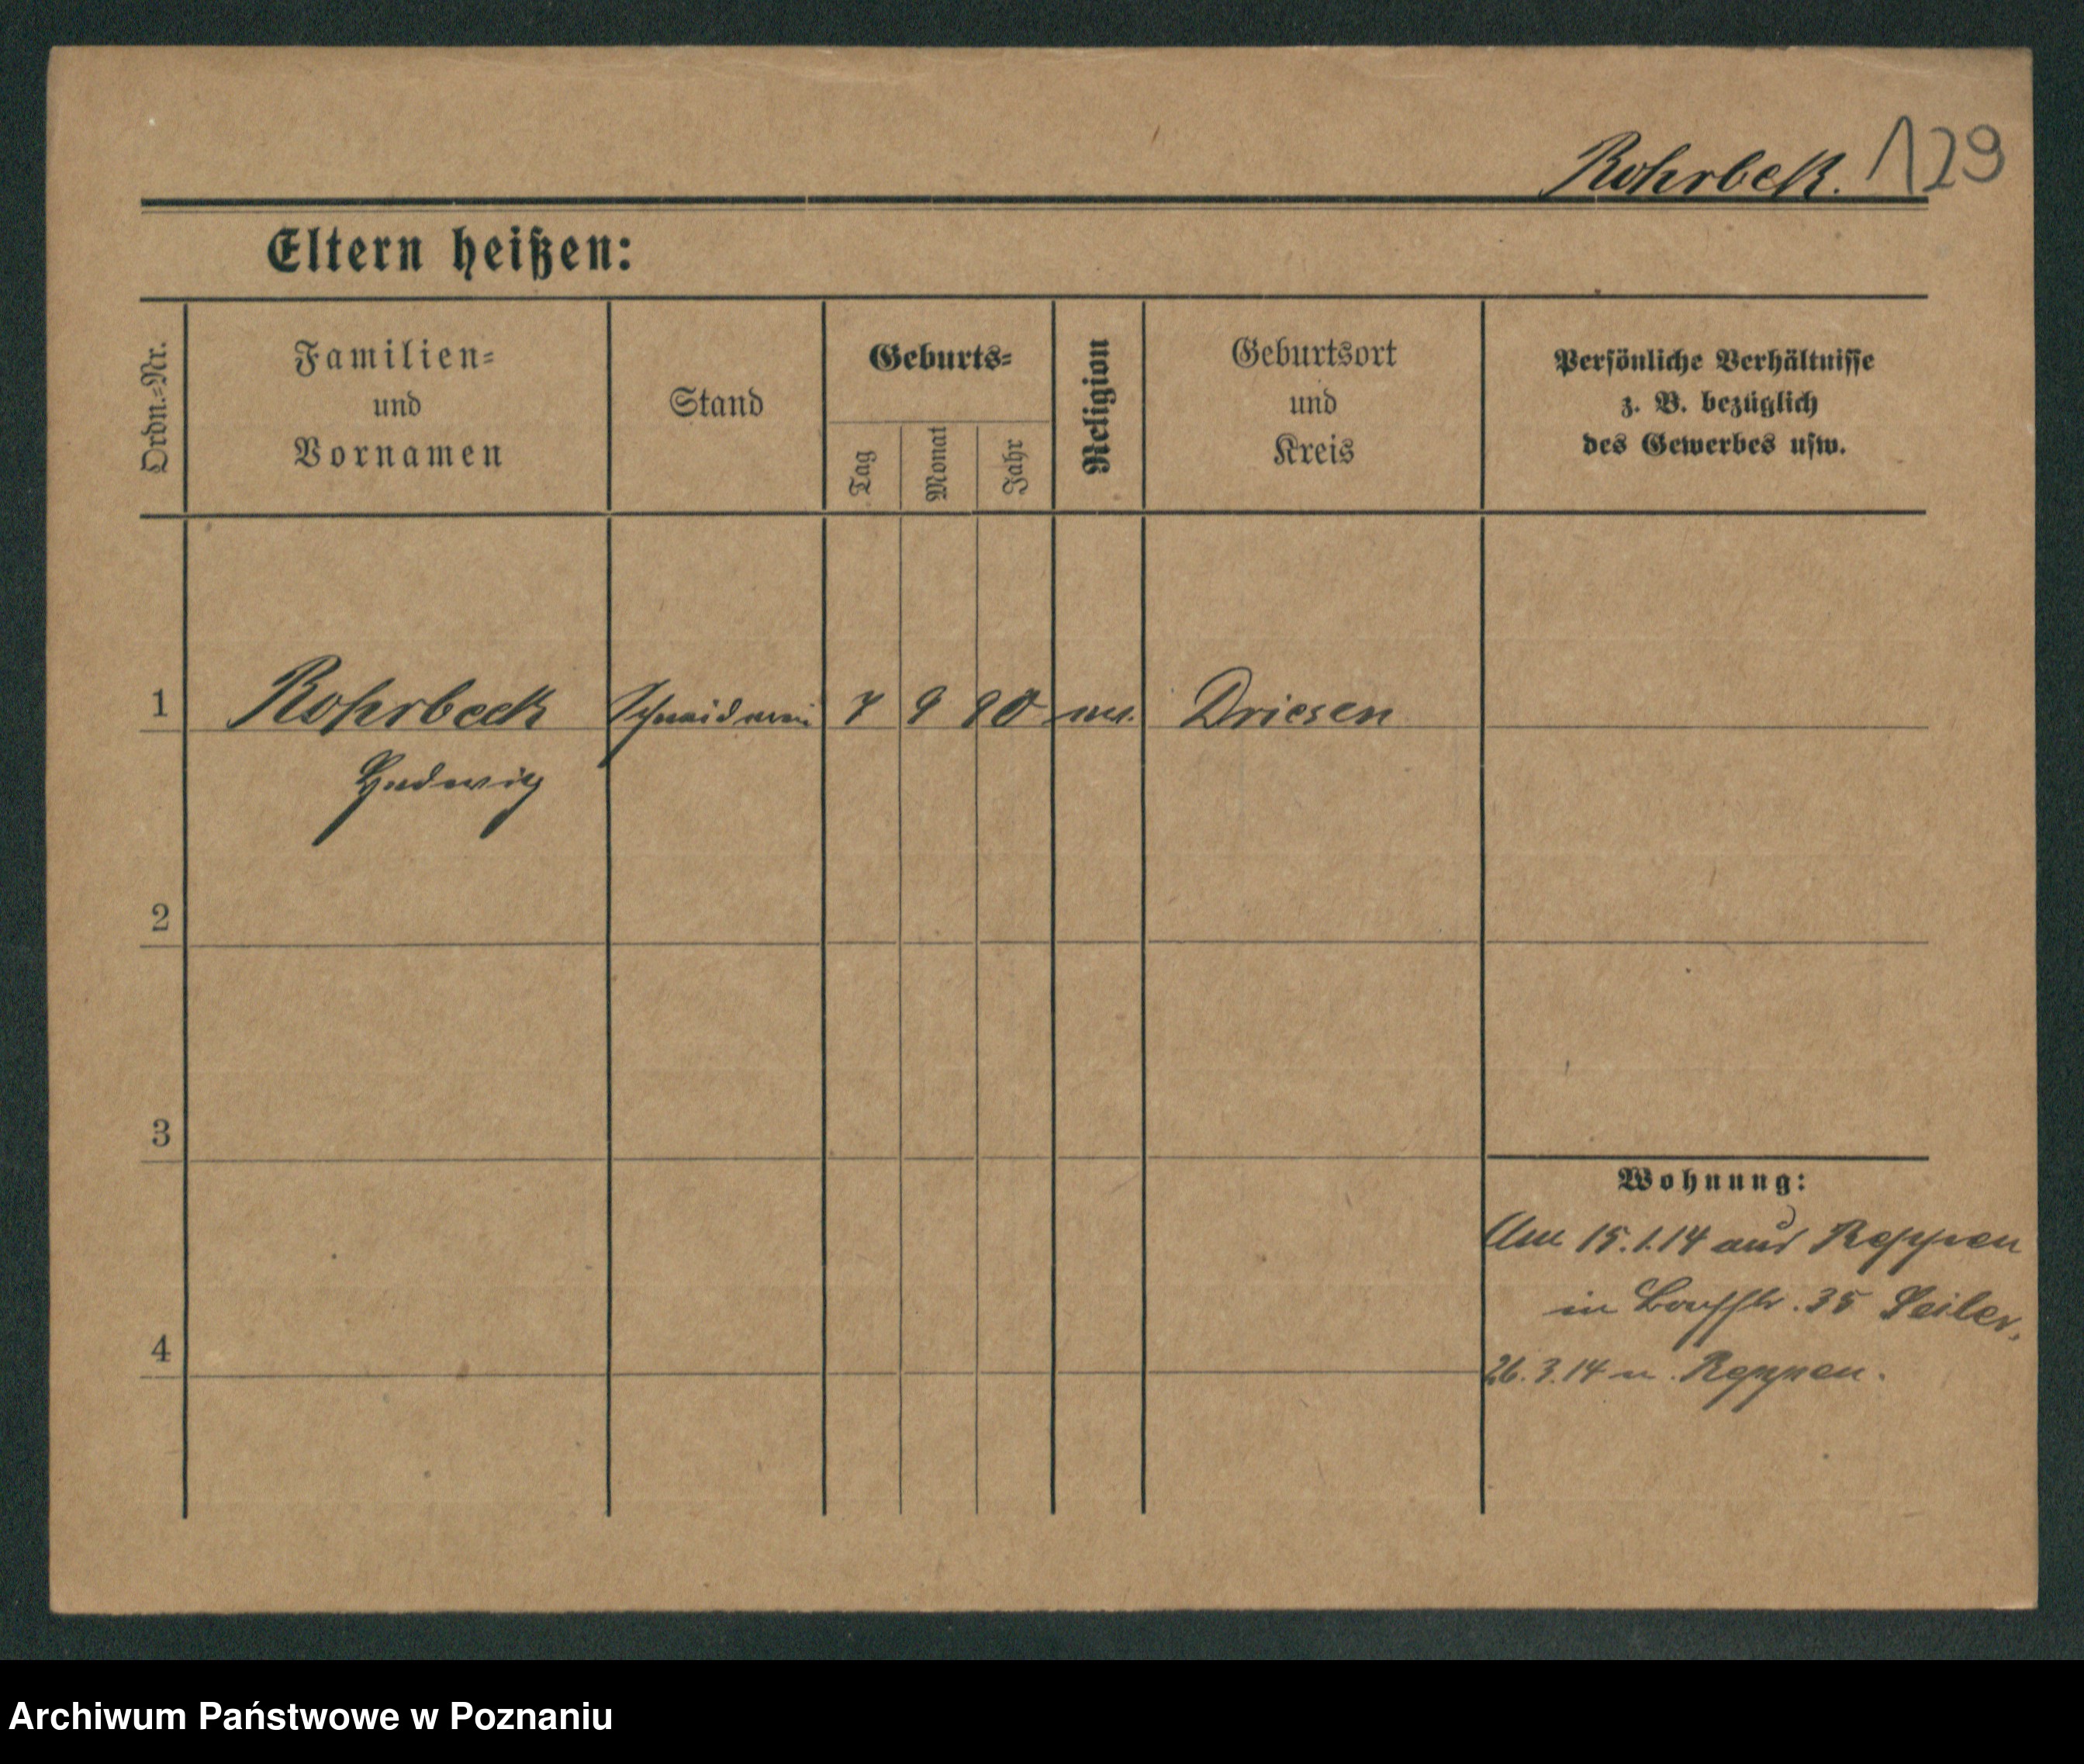 Rohrbeck. 129
Eltern heißen:
Ordn.-Nr.
Familien-
und
Vornamen
Stand
Geburts-
Tag
Monat
Jahr
Religion
Geburtsort
und
Kreis
Persönliche Verhältnisse
z. B. bezüglich
des Gewerbes usw.
1 Rohrbeck 7 9 90 Driesen
Hedwig
2
3
4
Wohnung:
Am 15.1.14 aus Reppen
in 35 Seiler,
26.3.14 n. Reppen.
Archiwum Państwowe w Poznaniu